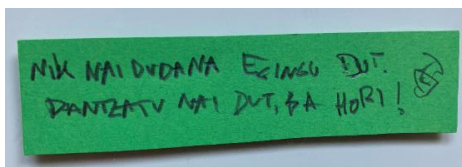 NIK NAI DUDANA EGINGU DUT.
DANTZATU NAI DUT, BA HORI!